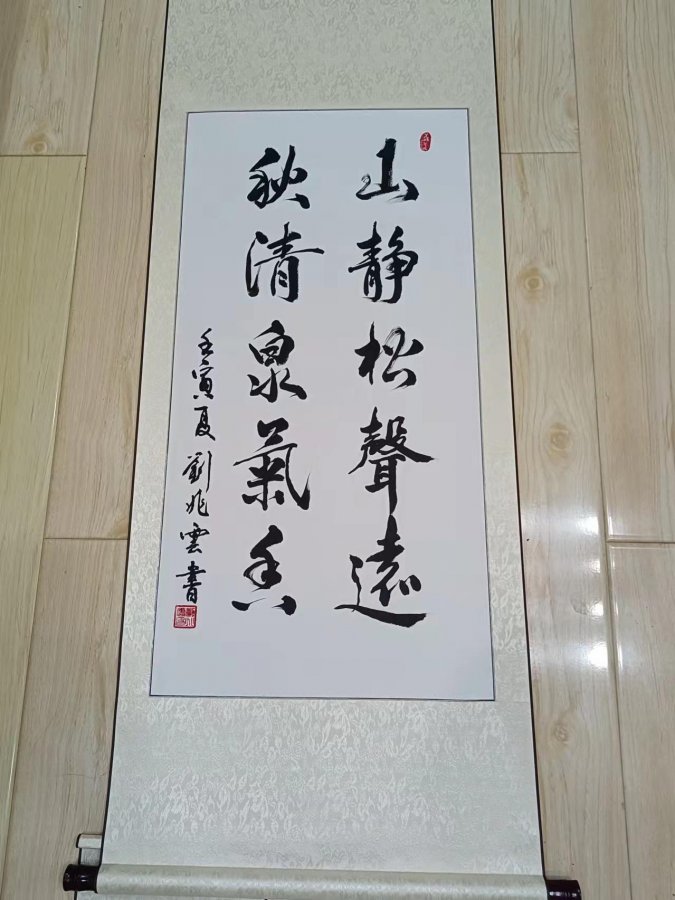 山静松聲遠
秋清泉氣香
壬寅夏劉兆雲書